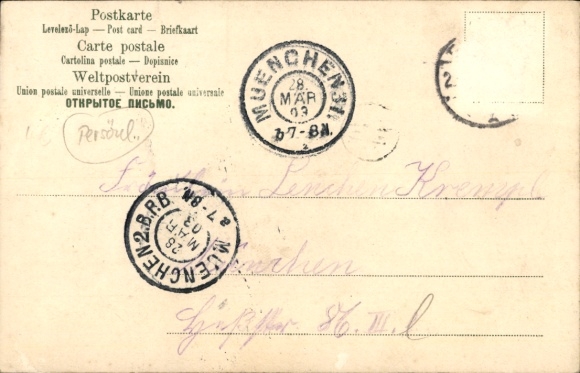 Postkarte
Levelező-Lap — Post card — Briefkaart
Carte postale
Cartolina postale — Dopisnice
Weltpostverein
Union postale universelle — Unione postale universale
ОТКРЫТОЕ ПИСЬМО.
Persönl.
MUENCHEN 31
28.
MÄR
03
7-8N.
Fräulein Lenchen Krempl
MUENCHEN 2.B.P.B.
28
MÄR
03
7-8N.
München
III. l